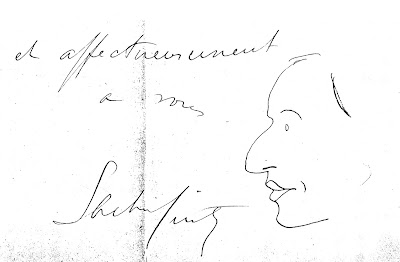 et affectueusement
a vous
Sacha Guitry